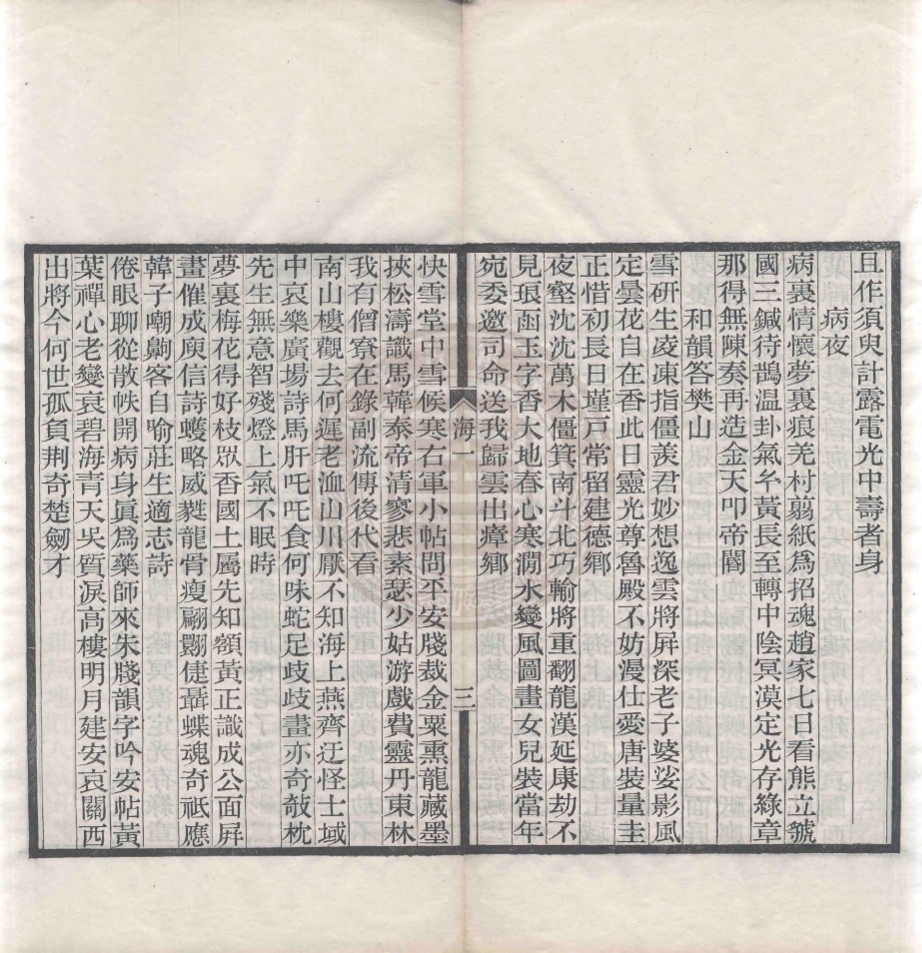 且作須臾計露電光中壽者身
病夜
病裏情懷夢裏痕羌村翦紙爲招魂趙家七日看熊立虢
國三鍼待鵲温卦氣糸黃長至轉中陰冥漠定光存綠章
那得無陳奏再造金天叩帝閽
和韻答樊山
雪研生凌凍指僵羨君妙想逸雲將屏深老子婆娑影風
定曇花自在香此日靈光尊魯殿不妨漫仕愛唐裝量圭
正惜初長日墐戶常留建德鄉
夜壑沈沈萬木僵箕南斗北巧輸將重翻龍漢延康劫不
見琅函玉字香大地春心寒澗水變風圖畫女兒裝當年
宛委邀司命送我歸雲出瘴鄉
海一
三
快雪堂中雪候寒右軍小帖問平安牋裁金粟熏龍藏墨
挾松濤識馬韓泰帝清寥悲素瑟少姑游戲費靈丹東林
我有僧寮在錄副流傳後代看
南山樓觀去何遲老洫山川厭不知海上燕齊迂怪士域
中哀樂廣場詩馬肝吒吒食何味蛇足歧歧畫亦奇敧枕
先生無意智殘燈上氣不眠時
夢裏梅花得好枝眾香國土屬先知額黃正識成公面屏
畫催成庾信詩蠖略威蕤龍骨瘦翩䎘倢聶蝶魂奇祗應
韓子嘲鼾客自喻莊生適志詩
倦眼聊從散帙開病身眞爲藥師來朱牋韻字吟安帖黃
葉禪心老變哀碧海青天吳質淚高樓明月建安哀關西
出將今何世孤負荆奇楚劒才